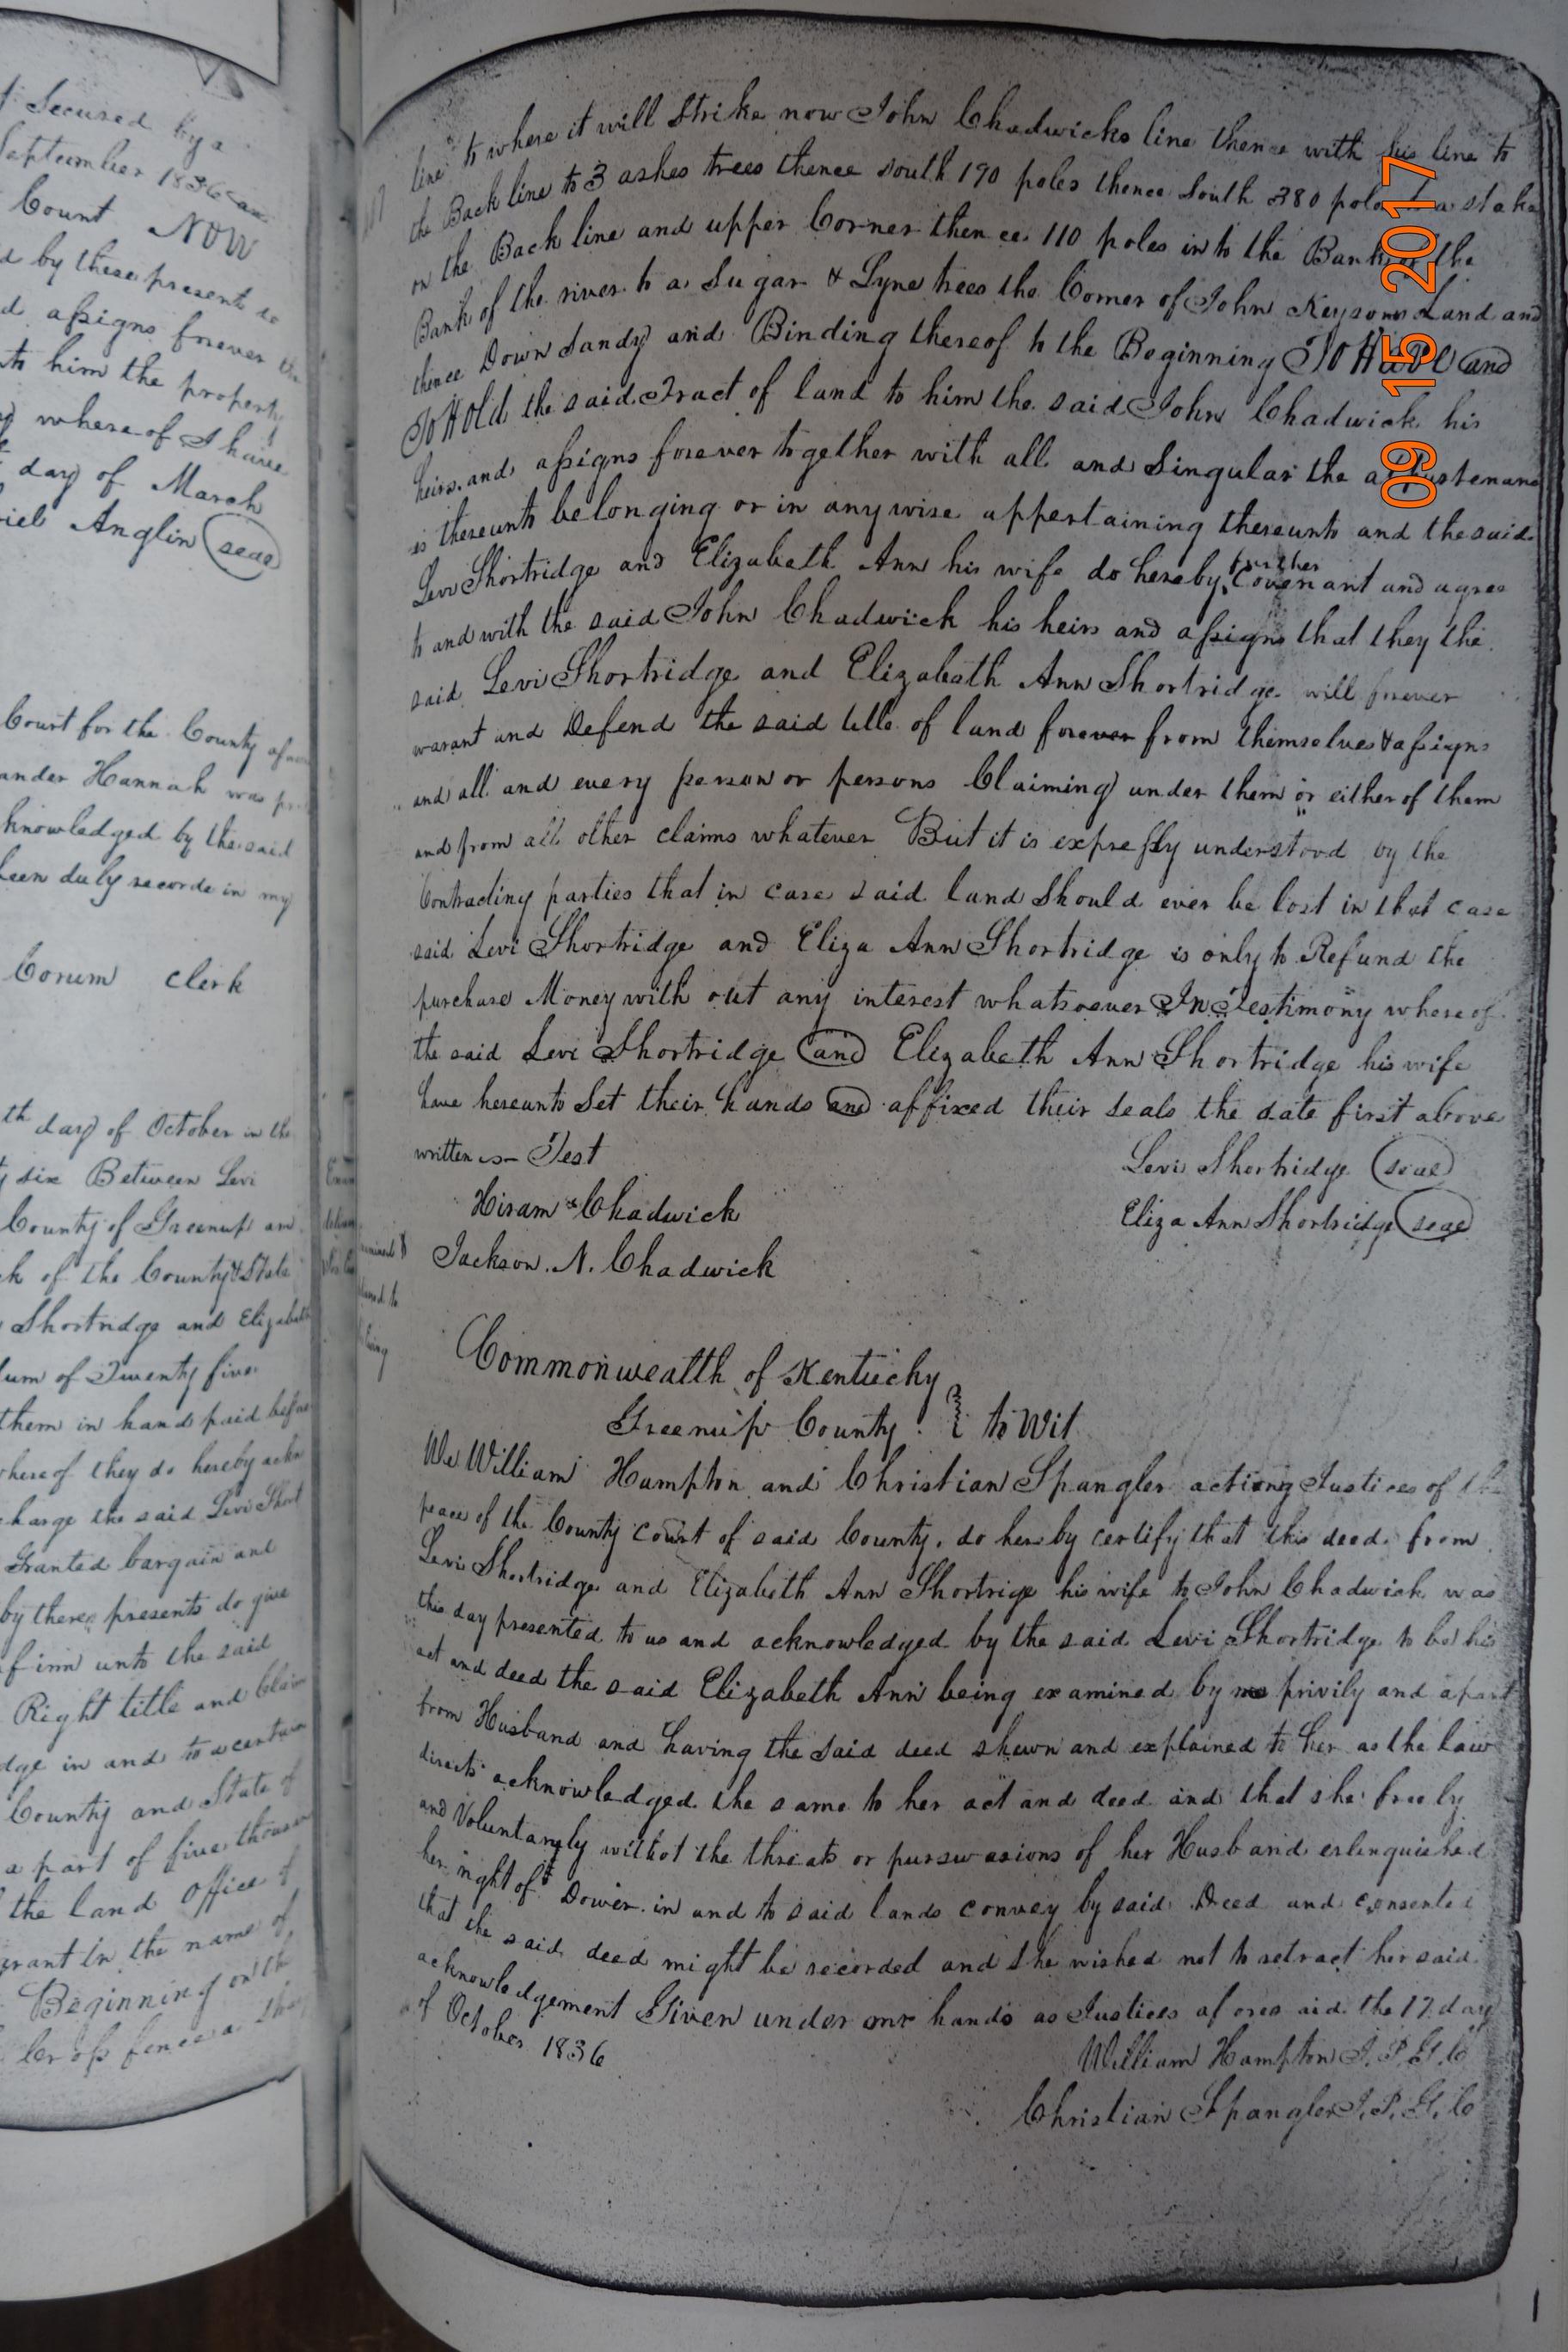 t Secured by a
September 1836
Count NOW
d by these presents
d assigns forever
to him the property
where of I have
day of March
iel Anglin seal
Court for the County of
ander Hannah was
knowledged by the said
been duly recorde in my
Corum Clerk
th day of October in the
six Between Levi
County of Greenup an
k of the County & State
Shortridge and Elizabeth
sum of Twenty five
them in hand paid before
where of they do hereby ackn
charge the said Levi Short
Granted bargain and
by there presents do give
firm unto the said
Right title and Claim
dge in and to a certain
County and State of
a part of five thousan
the land office of
grant in the name of
Beginning on the
line to where it will Strike now John Chadwicks line thence with his line to
the Back line to 3 ashes trees thence south 190 poles thence South 380 poles to a stake
on the Back line and upper Corner then ce 110 poles in to the Bank of the
Bank of the river to a Sugar & Lyne trees the Corner of John Keysons Land and
thence Down Sandy and Binding thereof to the Beginning TO HAVE and
To HOld the said Tract of land to him the said John Chadwick his
heirs and assigns forever together with all and Singular the appurtenanc
es thereunto belonging or in anywise appertaining thereunto and the said
Levi Shortridge and Elizabeth Ann his wife do hereby further Covenant and agree
to and with the said John Chadwick his heirs and assigns that they the
said Levi Shortridge and Elizabeth Ann Shortridge will forever
warant and Defend the said title of land forever from themselves & assigns
and all and every person or persons Claiming under them or either of them
and from all other claims whatever But it is expressly understood by the
Contracting parties that in case said land Should ever be lost in that case
said Levi Shortridge and Eliza Ann Shortridge is only to Refund the
purchase Money with out any interest whatsoever In Testimony where of
the said Levi Shortridge and Elizabeth Ann Shortridge his wife
have hereunto Set their hands and affixed their seals the date first above
written Test
Levi Shortridge seal
Hiram Chadwick
Eliza Ann Shortridge seal
Jackson. N. Chadwick
Commonwealth of Kentucky
Greenup County. to Wit
We William Hampton and Christian Spangler acting Justices of the
peace of the County Court of said County. do hereby certify that this deed from
Levi Shortridge and Elizabeth Ann Shortrige his wife to John Chadwick was
this day presented to us and acknowledged by the said Levi Shortridge to be his
act and deed the said Elizabeth Ann being examined by me privily and apart
from Husband and having the said deed shewn and explained to her as the law
directs acknowledged the same to her act and deed and that she freely
and Voluntaryly withot the threats or purswasions of her Husband erlenquished
her right of Dower in and to said lands convey by said Deed and consented
that the said deed might be recorded and she wished not to retract her said
acknowledgement Given under our hands as Justices aforesaid the 17 day
of October 1836
William Hampton J. P. G. C
Christian Spangler J. P. G. C
09 15 2017